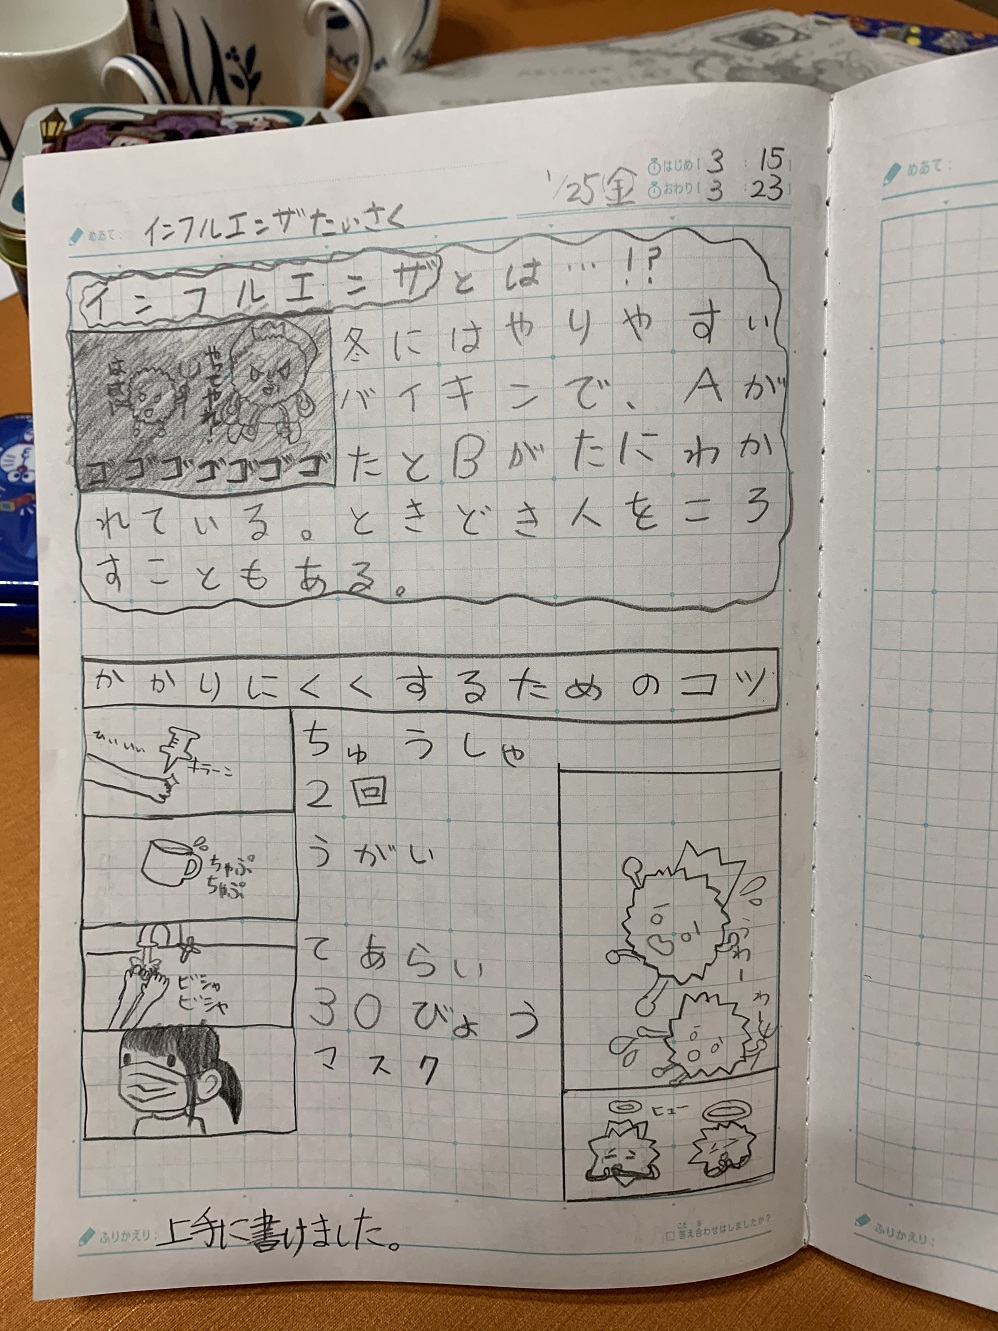 めあて： インフルエンザたいさく
1/25(金)
はじめ 3 : 15
おわり 3 : 23
インフルエンザとは…!?
冬にはやりやすい
バイキンで、Aが
たとBがたにわか
れている。ときどき人をころ
すこともある。
やってやれ！
ゴゴゴゴゴゴゴ
かかりにくくするためのコツ
ひぃぃぃ
キラーン
ちゅうしゃ
2回
ちゃぷ
ちゃぷ
うがい
ビシャ
ビシャ
てあらい
30びょう
マスク
うわー
わー
ヒュー
ふりかえり： 上手に書けました。
答え合わせはしましたか？
めあて：
ふりかえり：